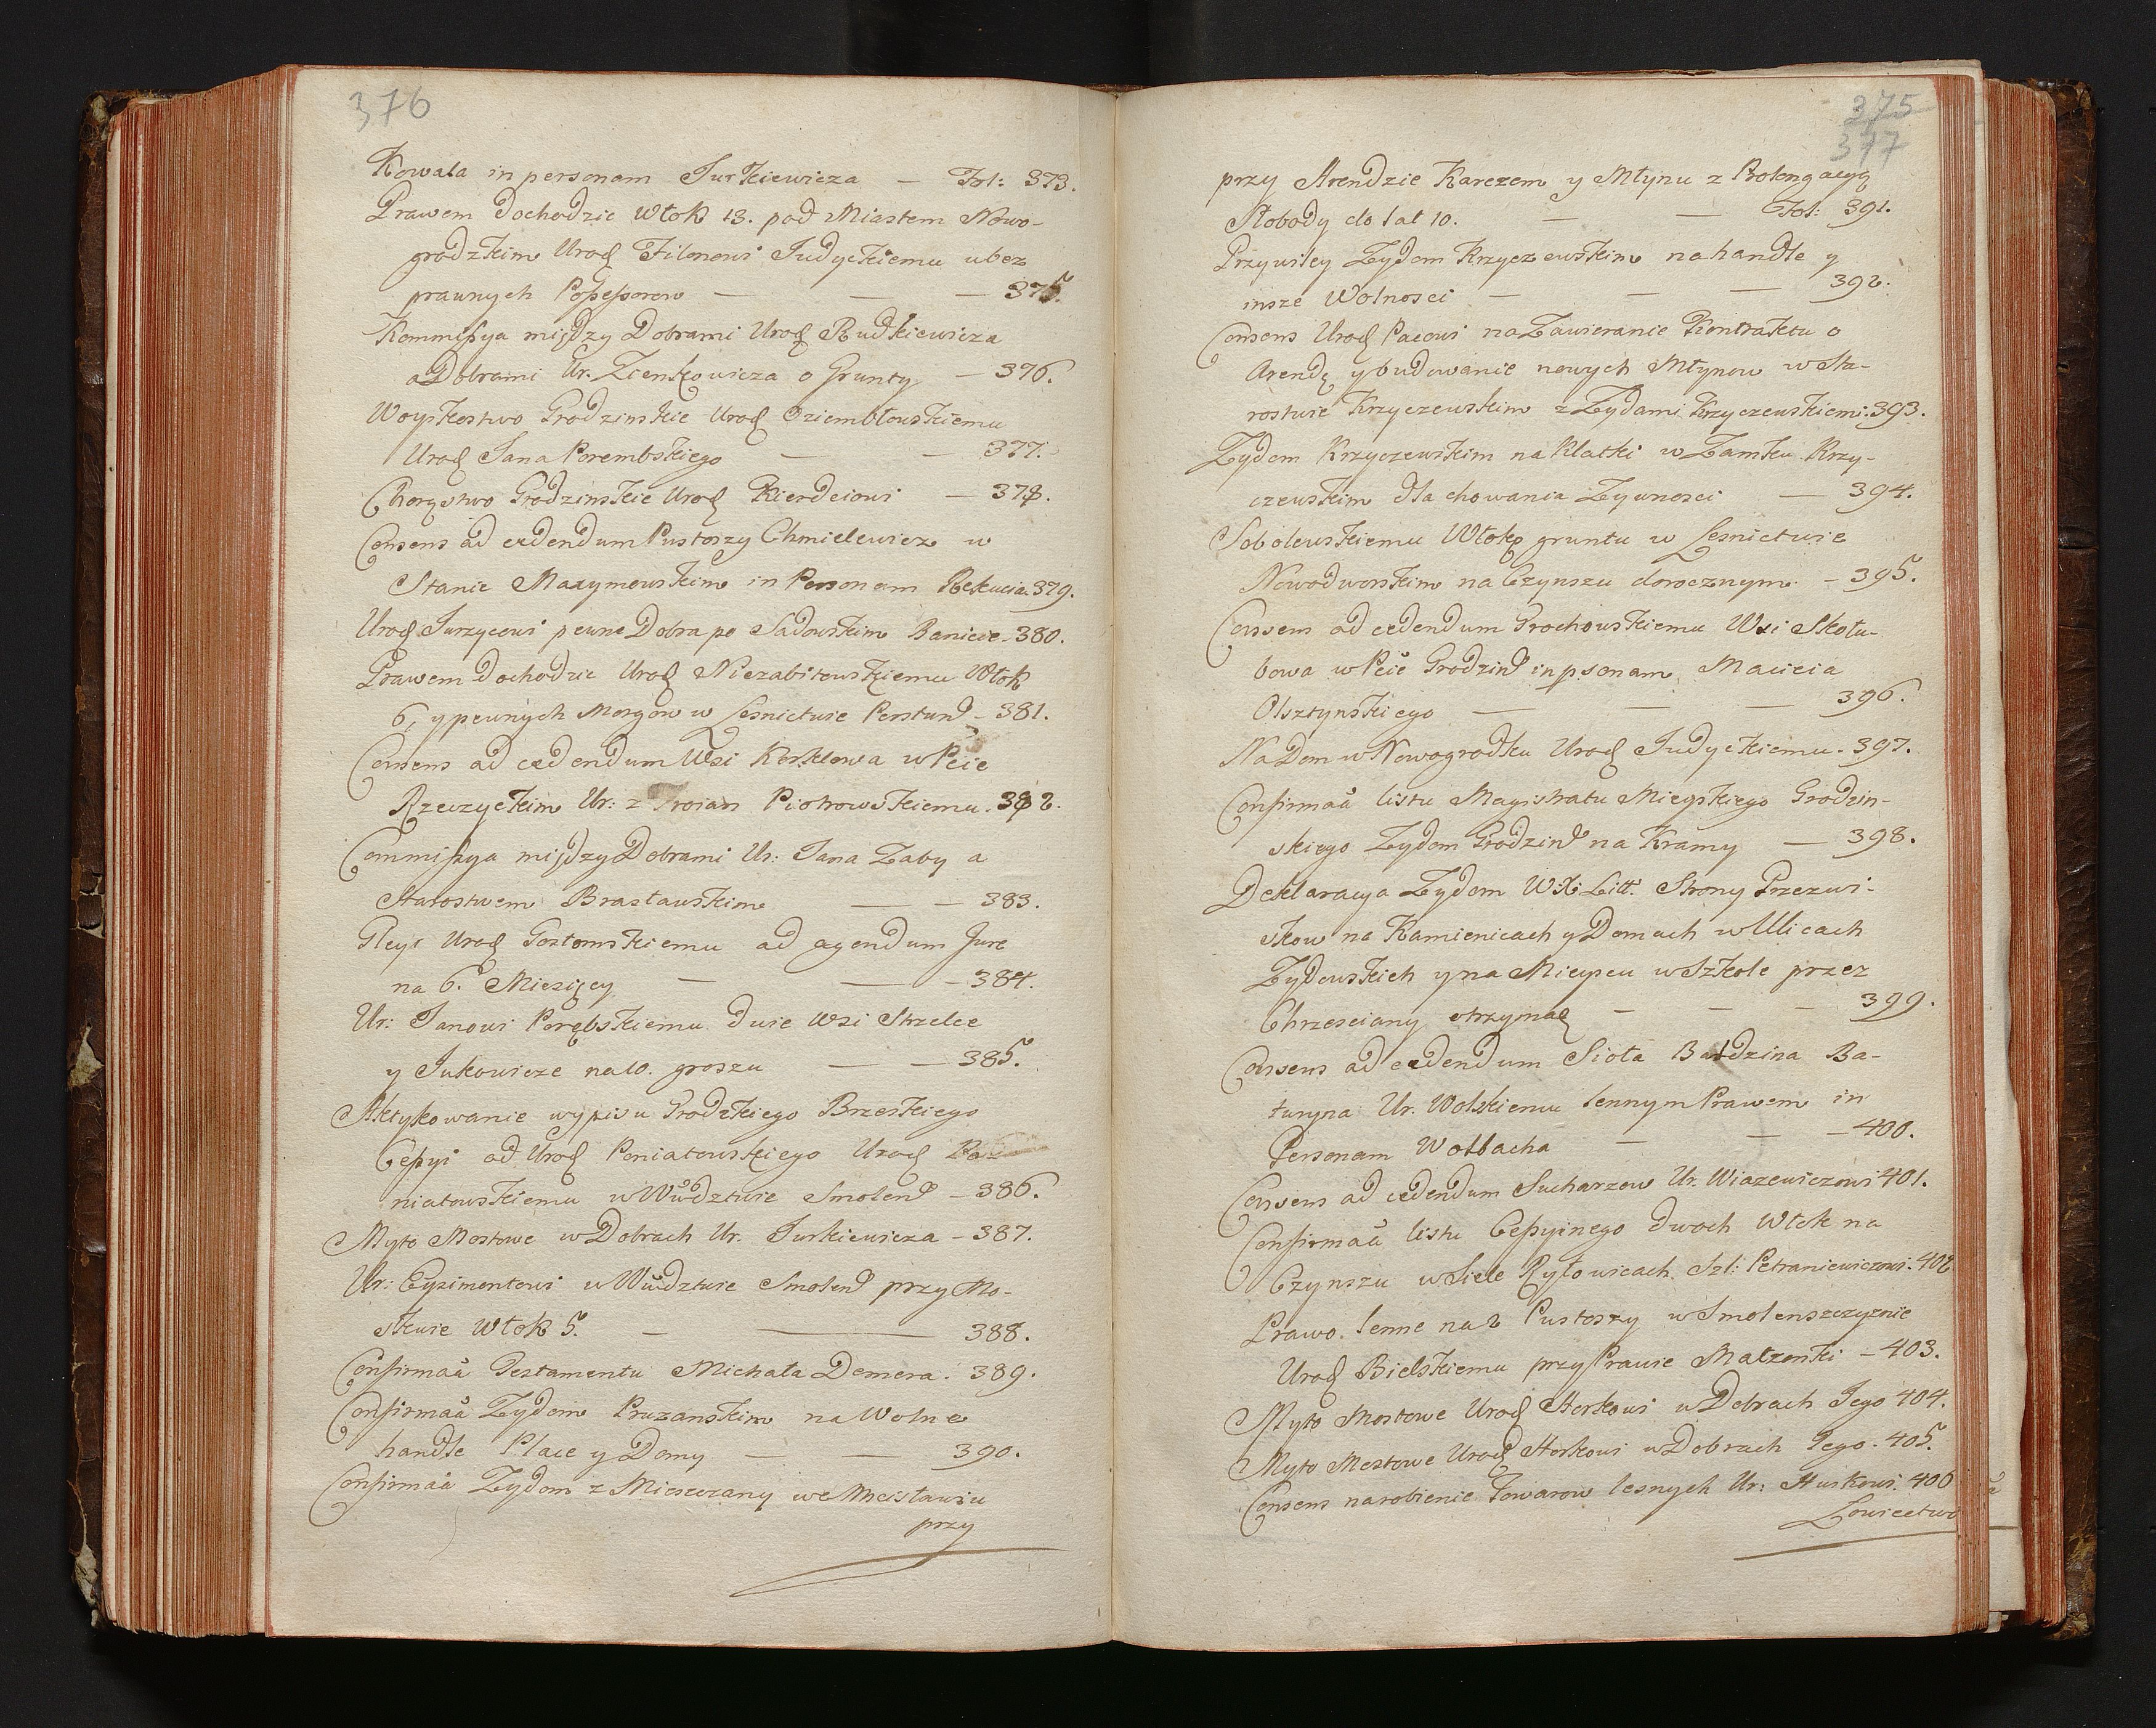 376
Kowala in personam Jurkiewicza — Fol: 373.
Prawem dochodzic Włok 13. pod Miastem Nowo-
grodzkim Urod Filonowi Judyckiemu u bez
prawnych Possessorow — — — 375.
Kommissya między Dobrami Urod Rudkiewicza
a Dobrami Ur. Zienkowicza o Grunty — 376.
Woyskostwo Grodzinskie Urod Dziembłowskiemu
Urod Jana Porembskiego — — 377.
Chorąstwo Grodzinskie Urod Kierdeiowi — 378.
Consens ad cedendum Pustoszy Chmielewicz w
Stanie Maxymowskim in Personam Rekucia 379.
Urod Jurzycowi pewne Dobra po Sadowskim Banicie - 380.
Prawem dochodzic Urod Niezabitowskiemu Włok
6, y pewnych Morgow w Lesnictwie Perstun - 381.
Consens ad cedendum Wsi Korklowa w Pcie
Rzeczyckim Ur: z Troian Piotrowskiemu. 382.
Commissya między Dobrami Ur: Jana Zaby a
Starostwem Brasławskim — — 383.
Gleyt Urod Gostomskiemu ad agendum Jure
na 6. Miesięcy — — - 384.
Ur: Janowi Porębskiemu dwie Wsi Strzelce
y Jukowicze na 10. groszu — — 385.
Aktykowanie wypisu Grodzkiego Brzeskiego
Cessyi od Urod Poniatowskiego Urod Po-
niatowskiemu w Wudztwie Smolen - 386.
Myto Mostowe w Dobrach Ur. Jurkiewicza - 387.
Ur: Eysimontowi w Wudztwie Smolen przy Mo-
skwie Włok 5. — — 388.
Confirmaa Testamentu Michała Demera. 389.
Confirmaa Zydom Pruzanskim na Wolne
handle Place y Domy — — 390.
Confirmaa Zydom z Mieszczany we Mscisławiu
przy
375
377
przy Arendzie Karczem y Młynu z Prolongacyą
Słobody do lat 10. — — Fol: 391.
Przywiley Zydom Krzyczewskim na handle y
insze Wolnosci — — — 392.
Consens Urod Pacowi na Zawieranie Kontraktu o
Arendę y budowanie nowych Młynow w Sta-
rostwie Krzyczewskim z Zydami Krzyczewskiemi. 393.
Zydom Krzyczewskim na Klatki w Zamku Krzy-
czewskim dla chowania Zywnosci — 394.
Sobolewskiemu Włokę gruntu w Lesnictwie
Nowodworskim na Czynszu dorocznym. - 395.
Consens ad cedendum Grochowskiemu Wsi Skołu-
bowa w Pcie Grodzin in psonam Macieia
Olsztynskiego — — — 396.
Na Dom w Nowogrodku Urod Judyckiemu. 397.
Confirmaa listu Magistratu Mieyskiego Grodzin-
skiego Zydom Grodzin na Kramy — 398.
Deklaracya Zydom WXLitt. Strony Przezwi-
skow na Kamienicach y Domach w Ulicach
Zydowskich y na Mieyscu w Szkole przez
Chrzesciany otrzyma — — — 399.
Consens ad cedendum Sioła Bałdzina Ba-
turyna Ur. Wolskiemu lennym Prawem in
Personam Wołłacha — — - 400.
Consens ad cedendum Sucharzow Ur. Wiazewiczowi 401.
Confirmaa listu Cessyinego dwoch Włok na
Czynszu w Siele Ryłowicach Szl: Petraniewiczowi. 402
Prawo lenne na 2 Pustoszy w Smolenszczyznie
Urod Bielskiemu przy Prawie Małzonki - 403.
Myto Mostowe Urod Horkowi w Dobrach Jego 404.
Myto Mostowe Urod Horkowi w Dobrach Jego. 405.
Consens na robienie Towarow lesnych Ur: Huskowi. 406
Łowiectwo